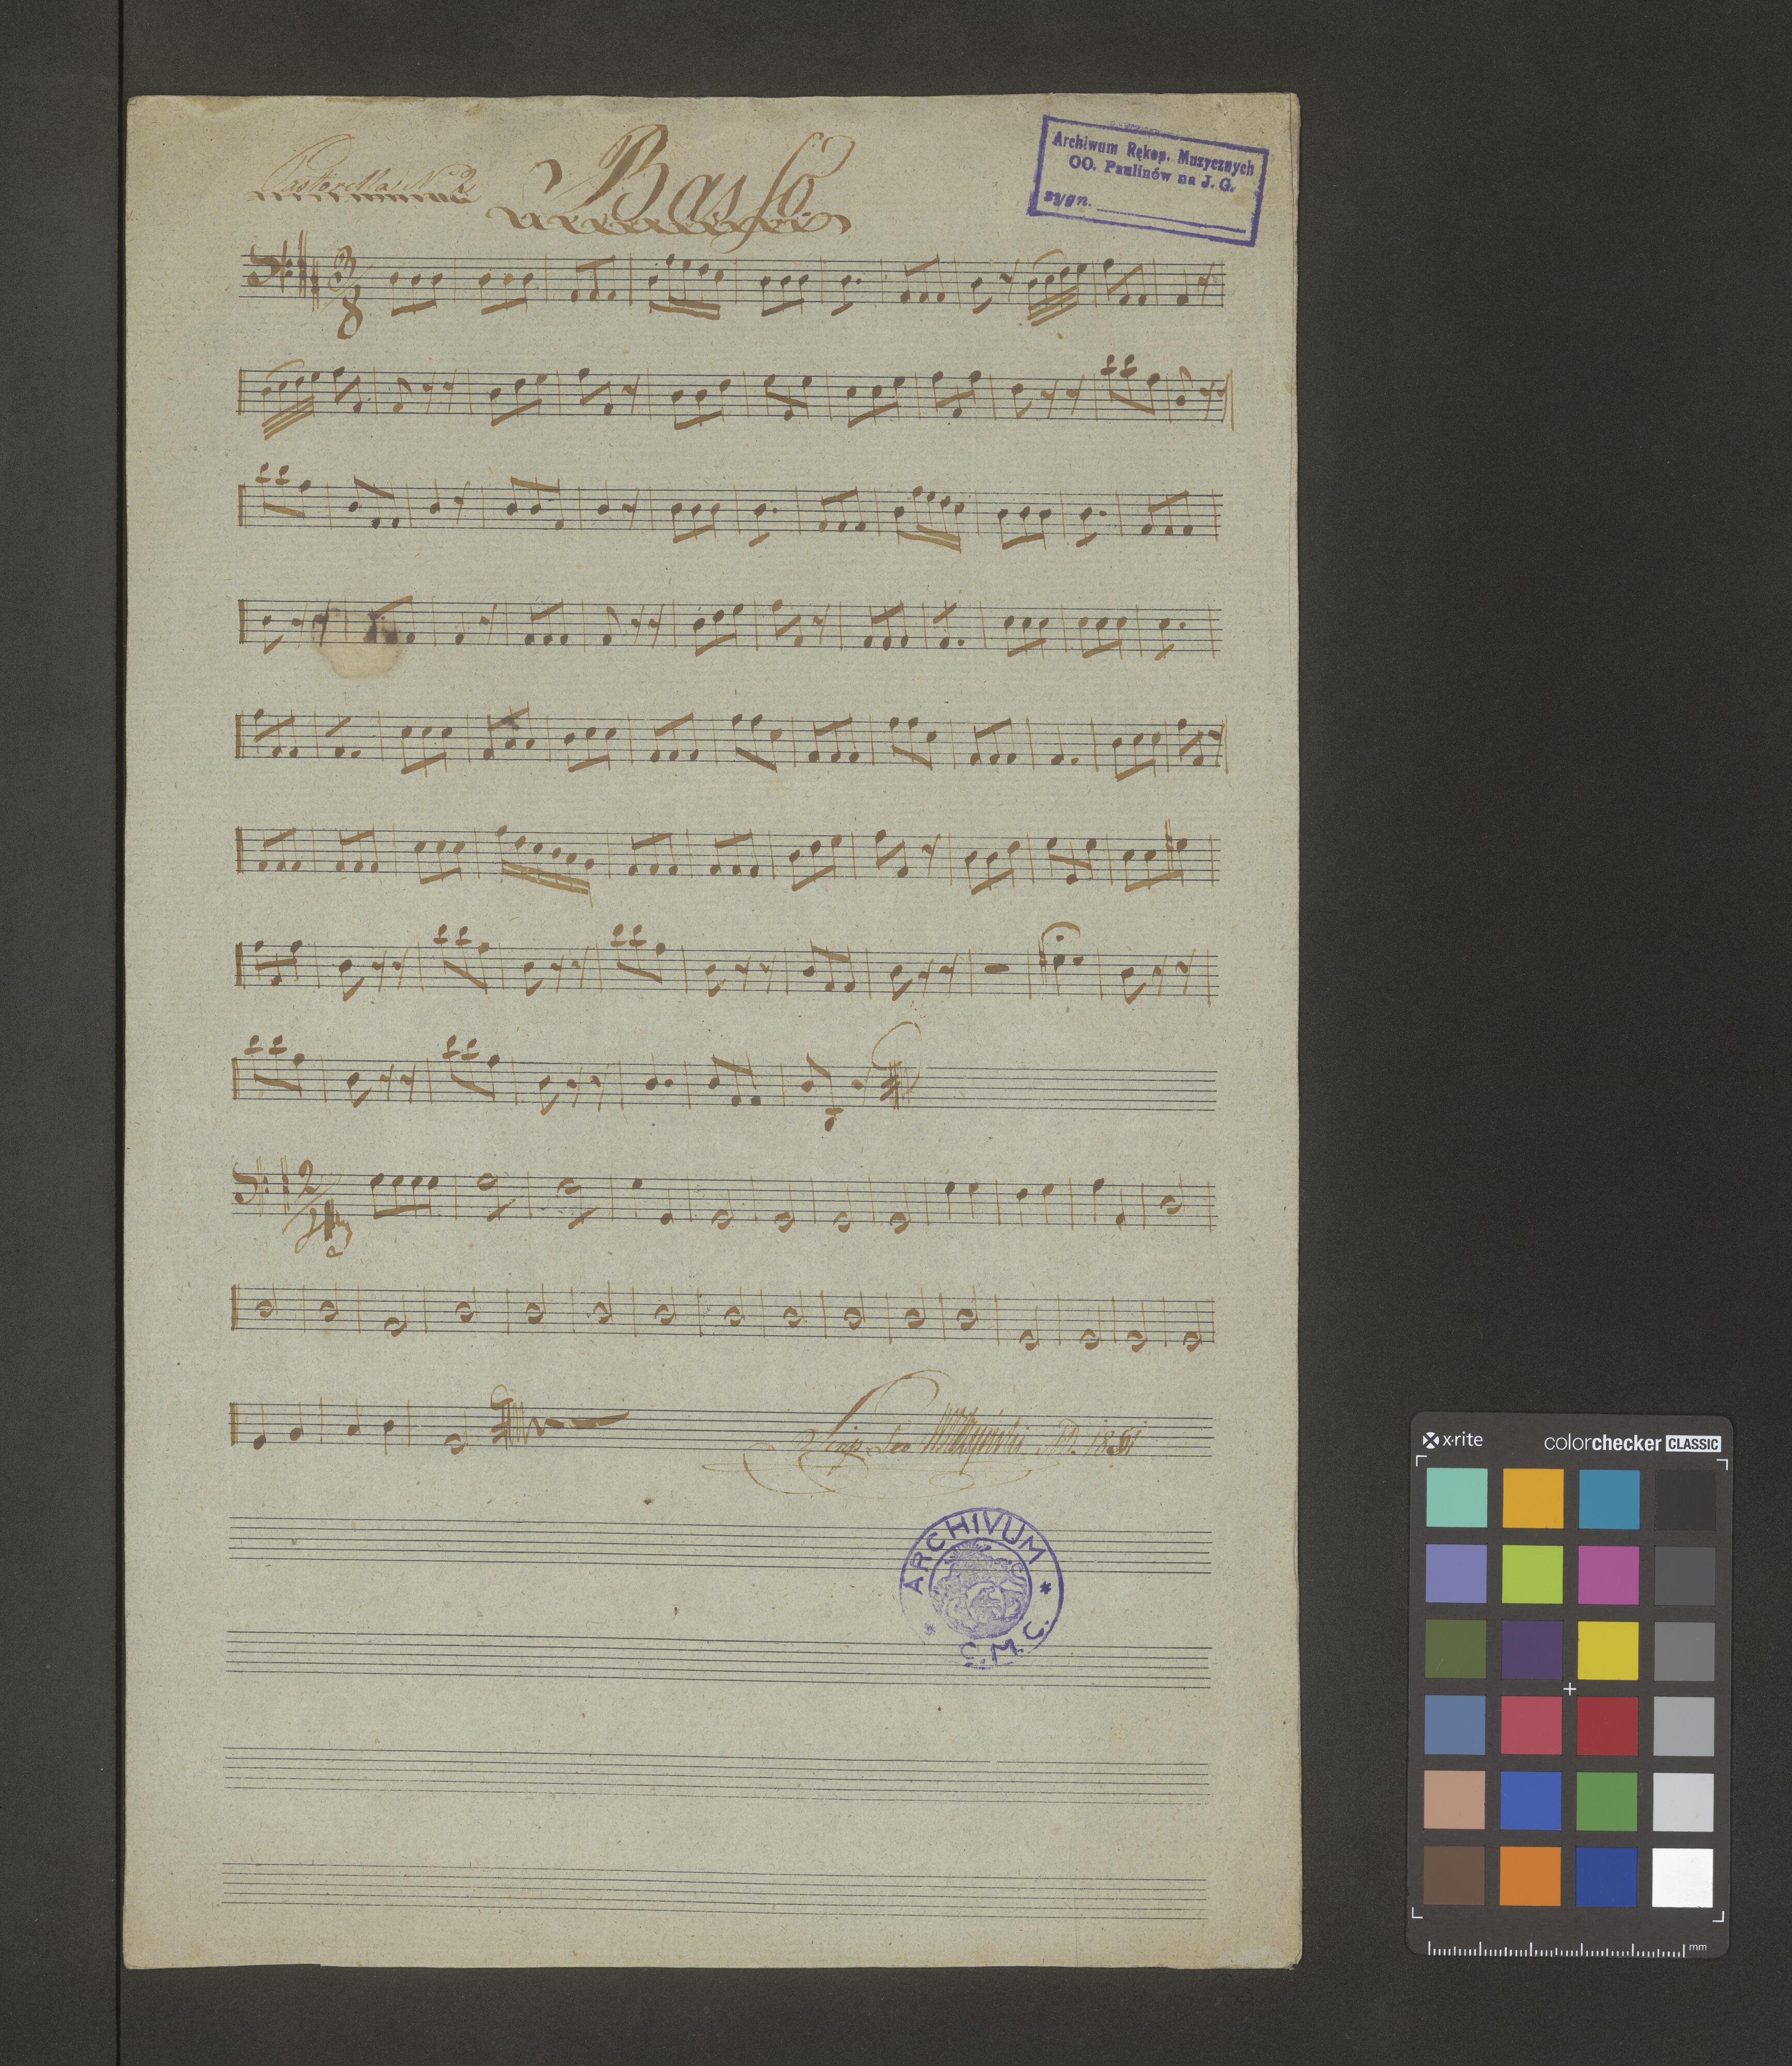 Pastorella N° 2
Basso
Archiwum Rękop. Muzycznych
OO. Paulinów na J. G.
sygn.
3/8
2/4
18
ARCHIVUM
C.M.C.
x·rite
colorchecker CLASSIC
mm